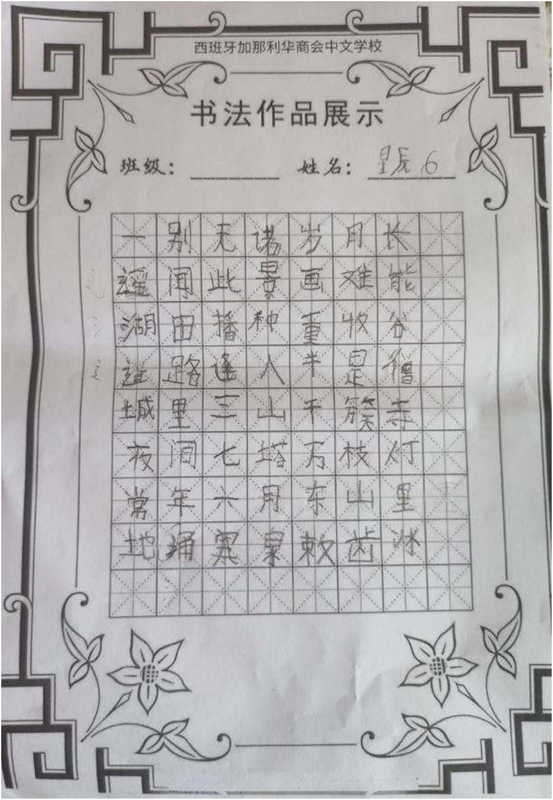 西班牙加那利华商会中文学校
书法作品展示
班级： 姓名： 星辰 6
一别无诸岁月长
遥闻此景画难能
湖田播种重收谷
道路逢人半是僧
城里三山千簇寺
夜间七塔万枝灯
常年六月东山里
地踊寒泉漱齿冰